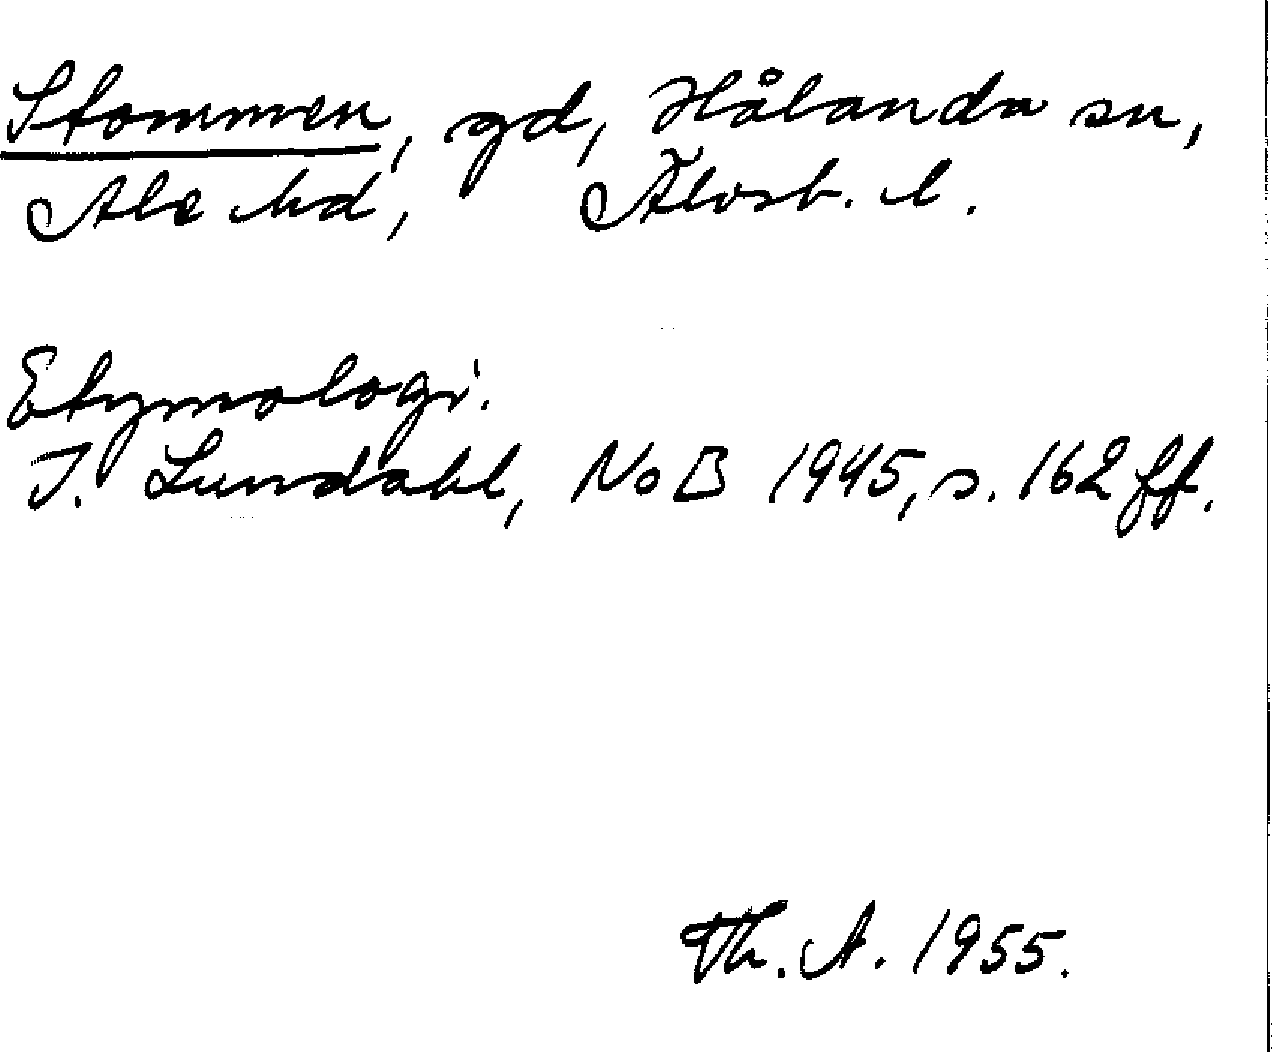 Stommen, gd, Hålanda sn,
Ale hd, Älvsb. l.
Etymologi.
I. Lundahl, NoB 1945, s. 162 ff.
Th. A. 1955.